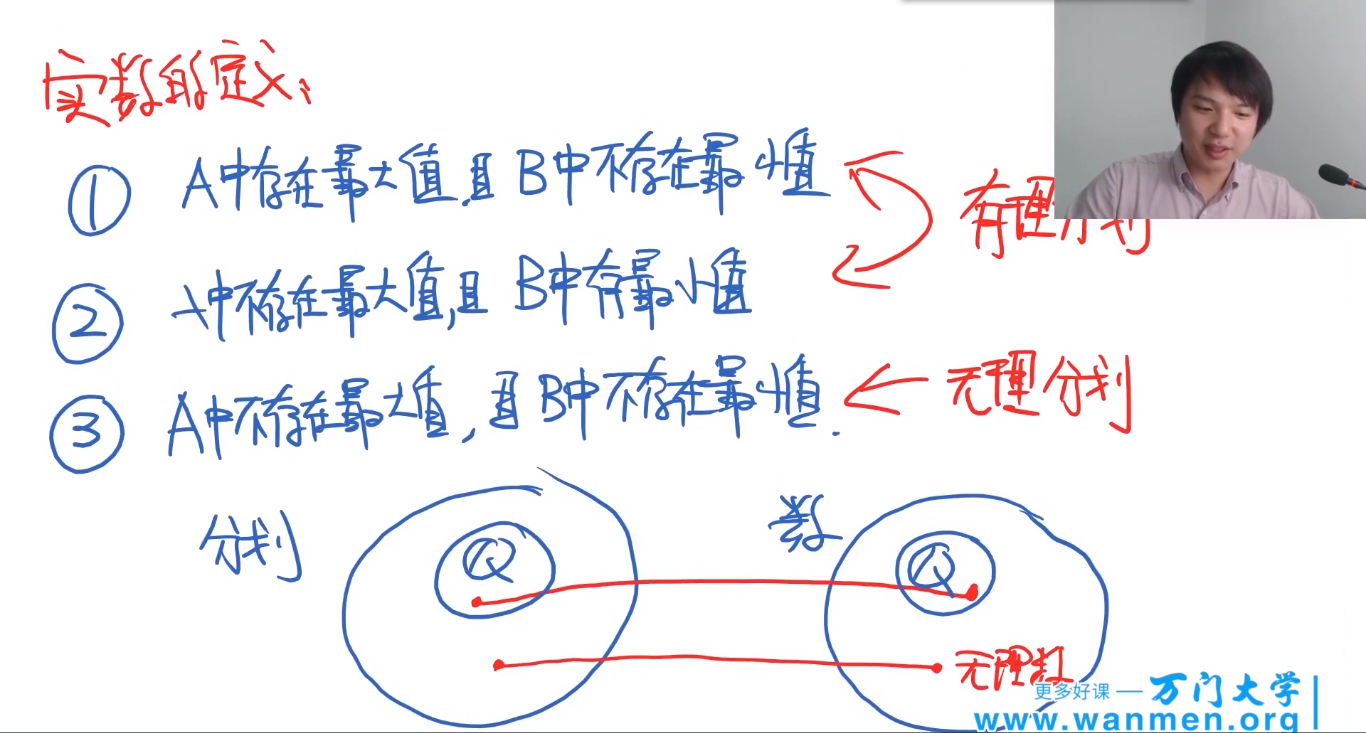 实数的定义:
① A中存在最大值,且B中不存在最小值
有理分划
② A中不存在最大值,且B中存最小值
③ A中不存在最大值,且B中不存在最小值.
无理分划
分划
数
Q
Q
无理数
更多好课 — 万门大学
www.wanmen.org